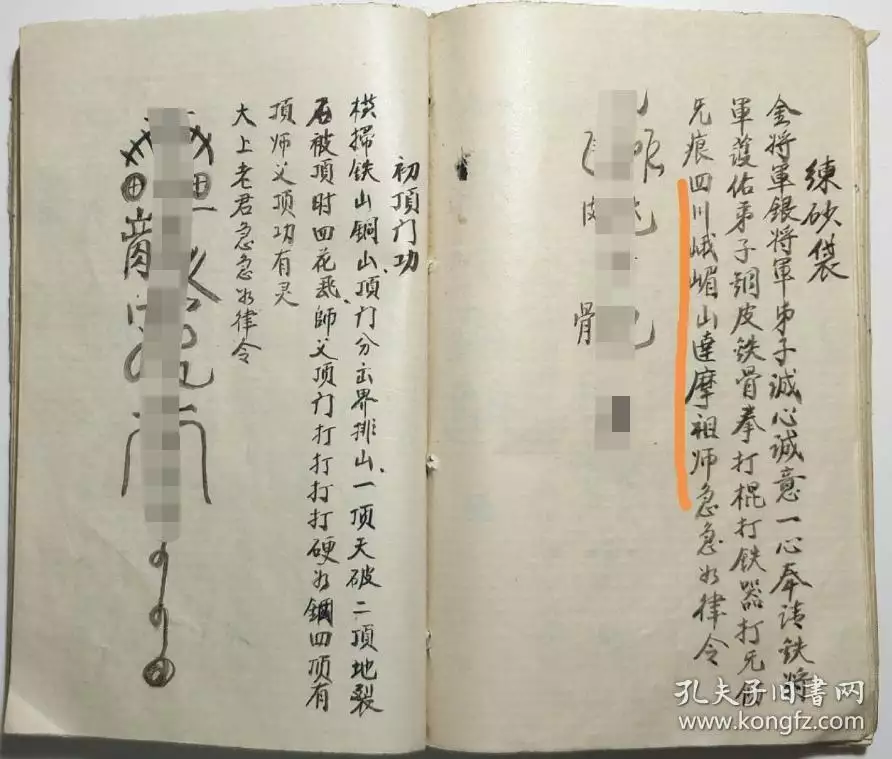 練砂袋
金將軍銀將軍弟子誠心誠意一心奉请鉄將
軍護佑弟子銅皮鉄骨拳打棍打鉄器打旡伤
旡痕四川峨嵋山達摩祖师急急如律令
骨
初頂门功
横掃铁山銅山、頂门分出界排山、一顶天破二頂地裂
石被頂时四花飛、師父頂门打打打打硬如鋼四顶有
頂师父顶功有灵
大上老君急急如律令
孔夫子旧書网
www.kongfz.com